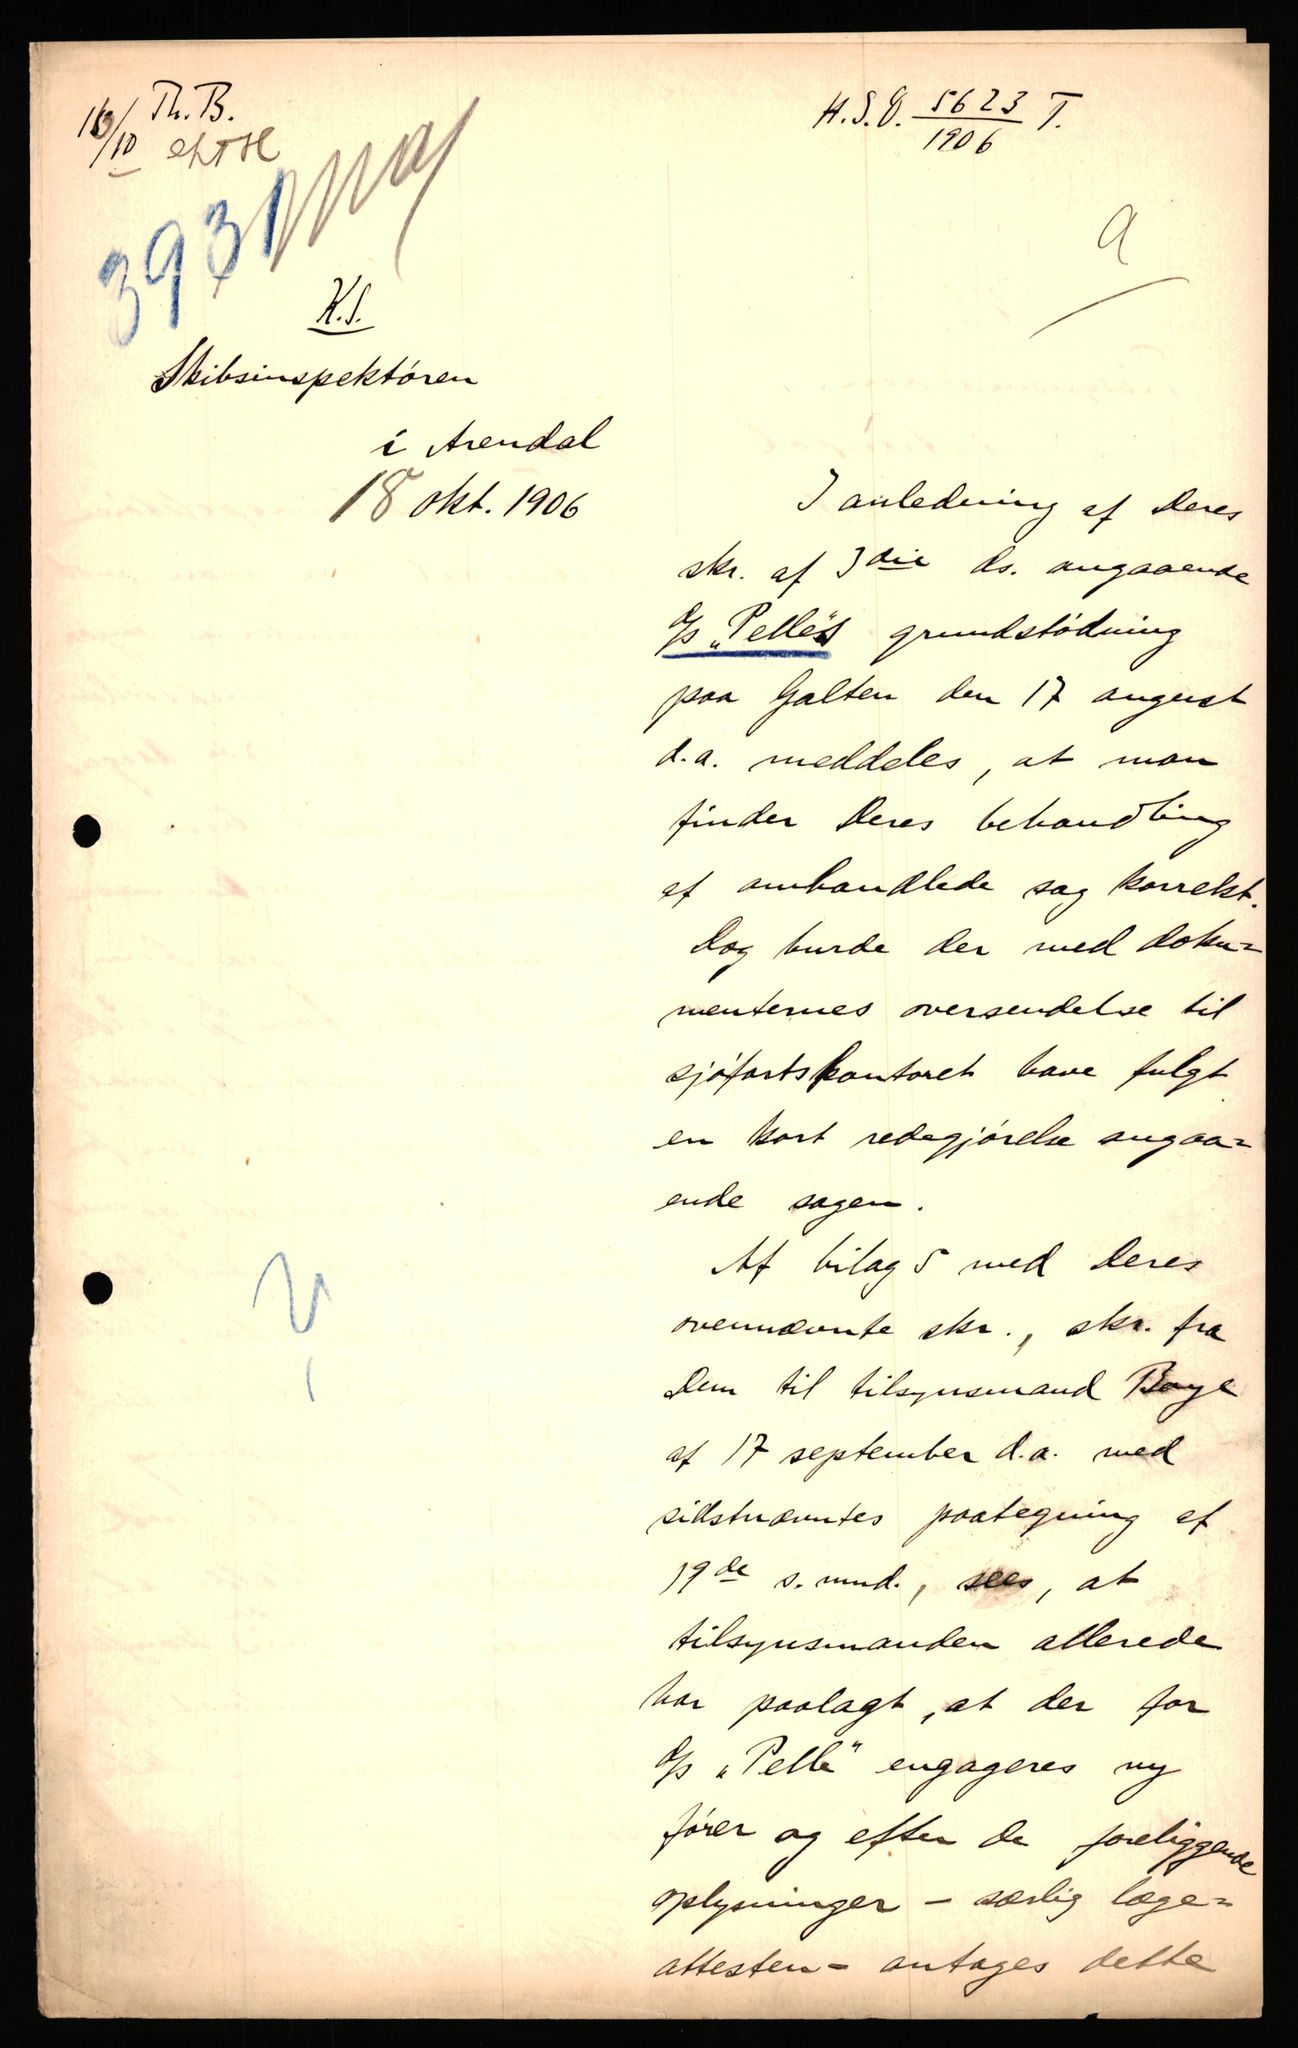 16/10 Th. B.
H.S.D. 5623/1906 T.
a
3931
K.S.
Skibsinspektören
i Arendal
18 okt. 1906
I anledning af Deres
skr. af 3die ds. angaaende
D/s "Pelle"s grundstödning
paa Galten den 17 august
d.a. meddeles, at man
finder Deres behandling
af omhandlede sag korrekt.
Dog burde der med doku=
menternes oversendelse til
sjöfartskontoret have fulgt
en kort redegjörelse angaa=
ende sagen.
Af bilag 5 med Deres
ovennævnte skr., skr. fra
Dem til tilsynsmand Boye
af 17 september d.a. med
sidstnævntes paategning af
19de s. mnd., sees, at
tilsynsmanden allerede
har paalagt, at der for
D/s "Pelle" engageres ny
förer og efter de foreliggende
oplysninger - særlig læge=
attesten - antages dette